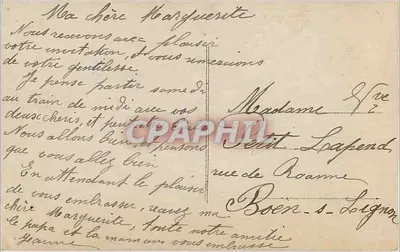 Ma chère Marguerite
Nous recevons avec plaisir
votre invitation, et vous remercions
de votre gentillesse
Je pense partir samedi
au train de midi avec vos
deux cheris, et
Nous allons bien, et pensons
que vous allez bien
En attendant le plaisir
de vous embrasser, recevez ma
chère Marguerite, toute notre amitié
le papa et la maman vous embrasse
Jeanne
Madame Vve
Petit Lapend
rue de Roanne
Boën-s-Lignon
CPAPHIL